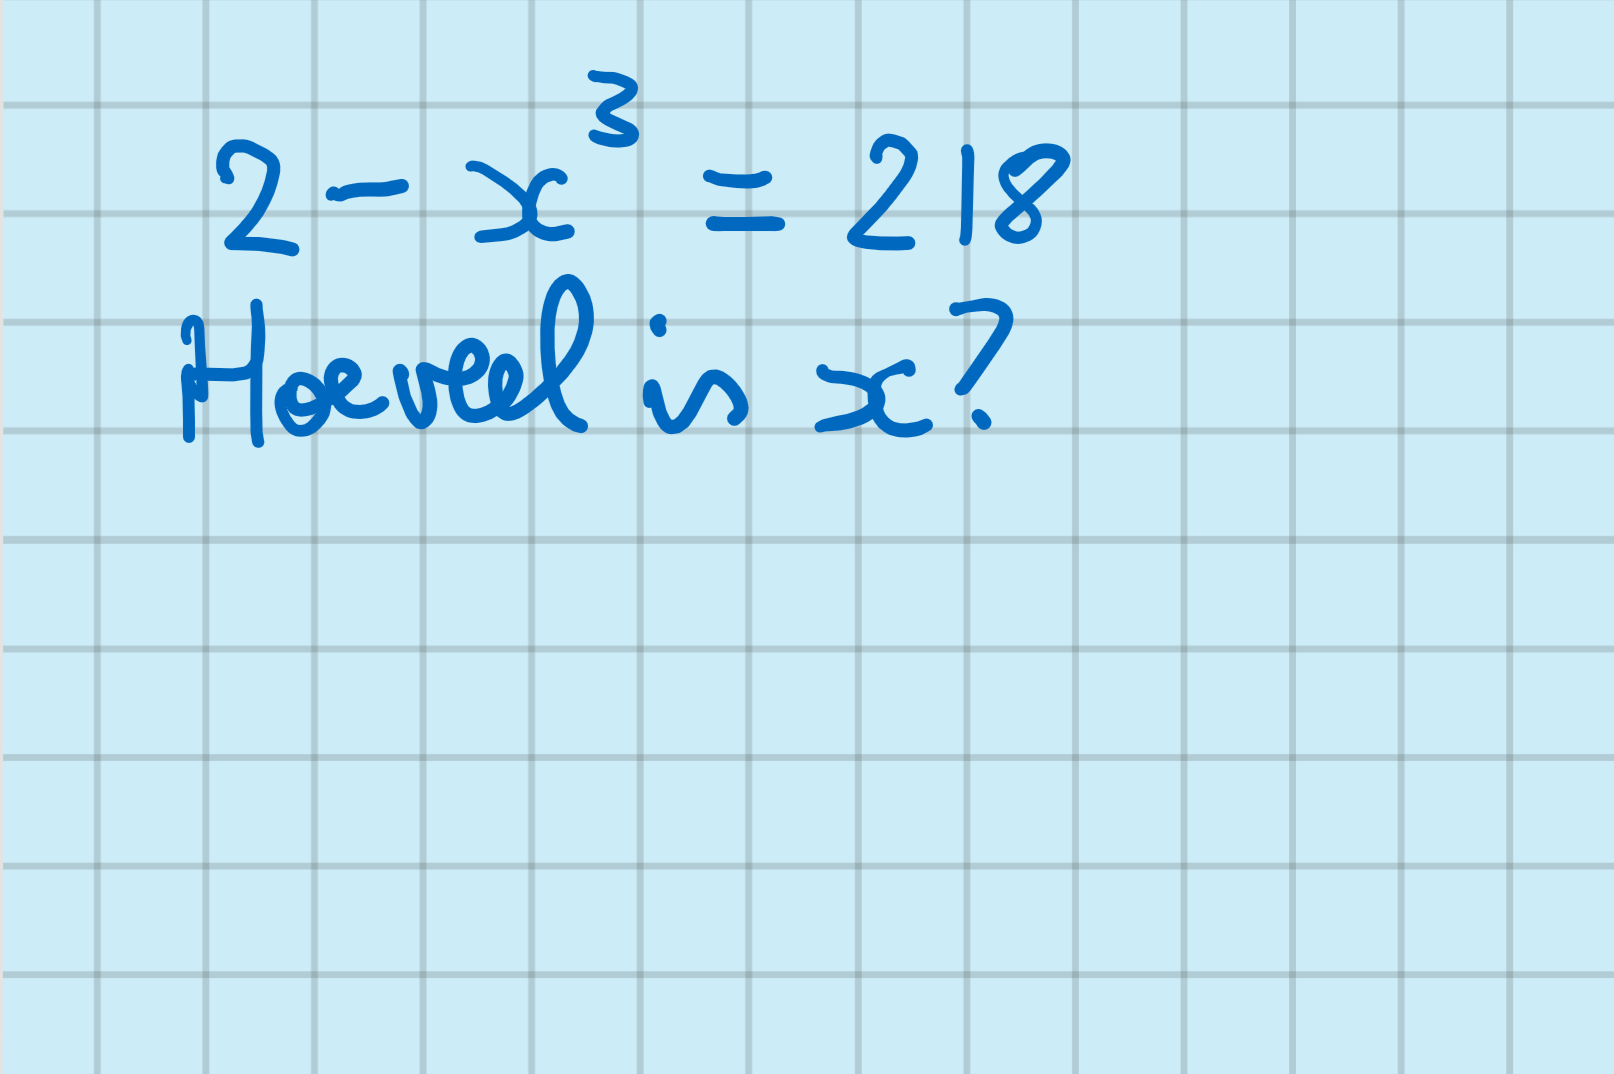 2 - x³ = 218
Hoeveel is x?